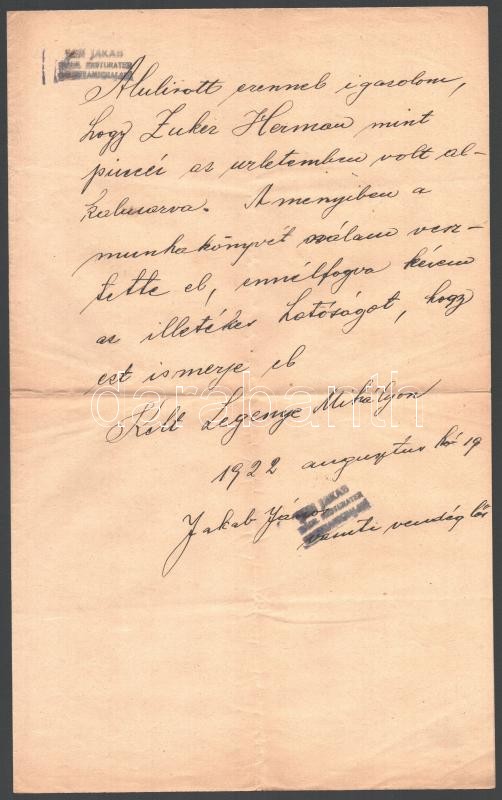 JAKAB
RESTURATER
Alulirott ezennel igazolom,
hogy Zuker Herman mint
pincér az üzletemben volt al-
kalmazva. A menyiben a
munkakönyvét nálam vesz-
tette el, ennélfogva kérem
az illetékes hatóságot, hogy
ezt ismerje el
Kelt Legenye Mihályon
1922 augusztus hó 19
Jakab János
vasuti vendéglős
JAKAB
RESTURATER
darabanth.com